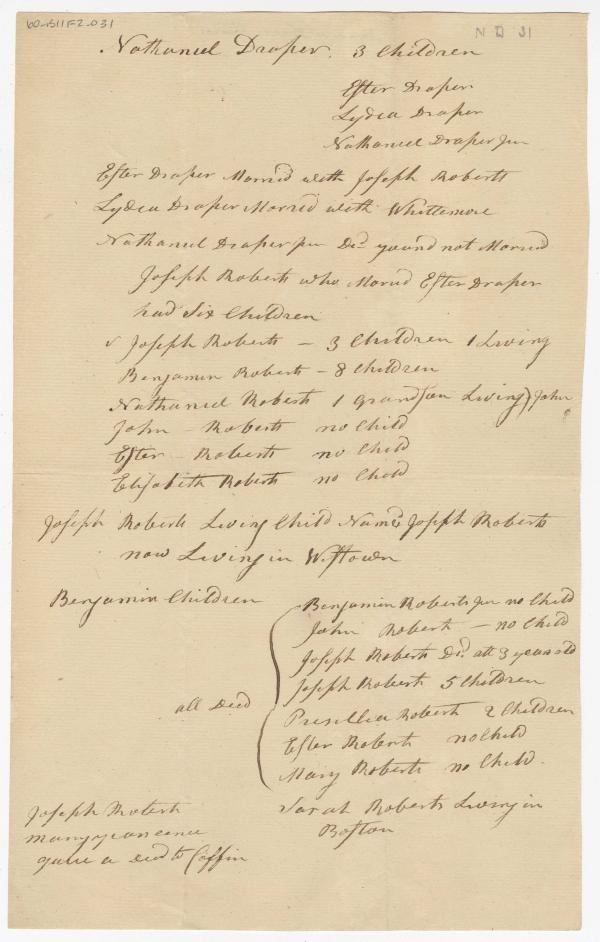 60-B11F2-031
N D 31
Nathaniel Draper. 3 Children
Efter Draper
Lydea Draper
Nathaniel Draper Jun
Efter Draper Marrid with Joseph Roberts
Lydea Draper Marrid with Whittemore
Nathaniel Draper Jun Did. yound not Marrid
Joseph Roberts who Marrid Efter Draper
had Six Children
Joseph Roberts - 3 Children 1 Living
Benjamin Roberts - 8 Children
Nathaniel Roberts 1 grandson Living) John
John - Roberts no Child
Efter - Roberts no Child
Elisabeth Roberts no Child
Joseph Roberts Living Child Named Joseph Roberts
now Living in Westown
Benjamin Children
Benjamin Roberts Jun no Child
John Roberts - no Child
Joseph Roberts Did. att 3 years old
Joseph Roberts 5 Children
all Deed
Presillia Roberts 2 Children
Efter Roberts no Child
Mary Roberts no Child.
Sarah Roberts Living in
Boston
Joseph Roberts
many years cence
gave a Deed to Coffin